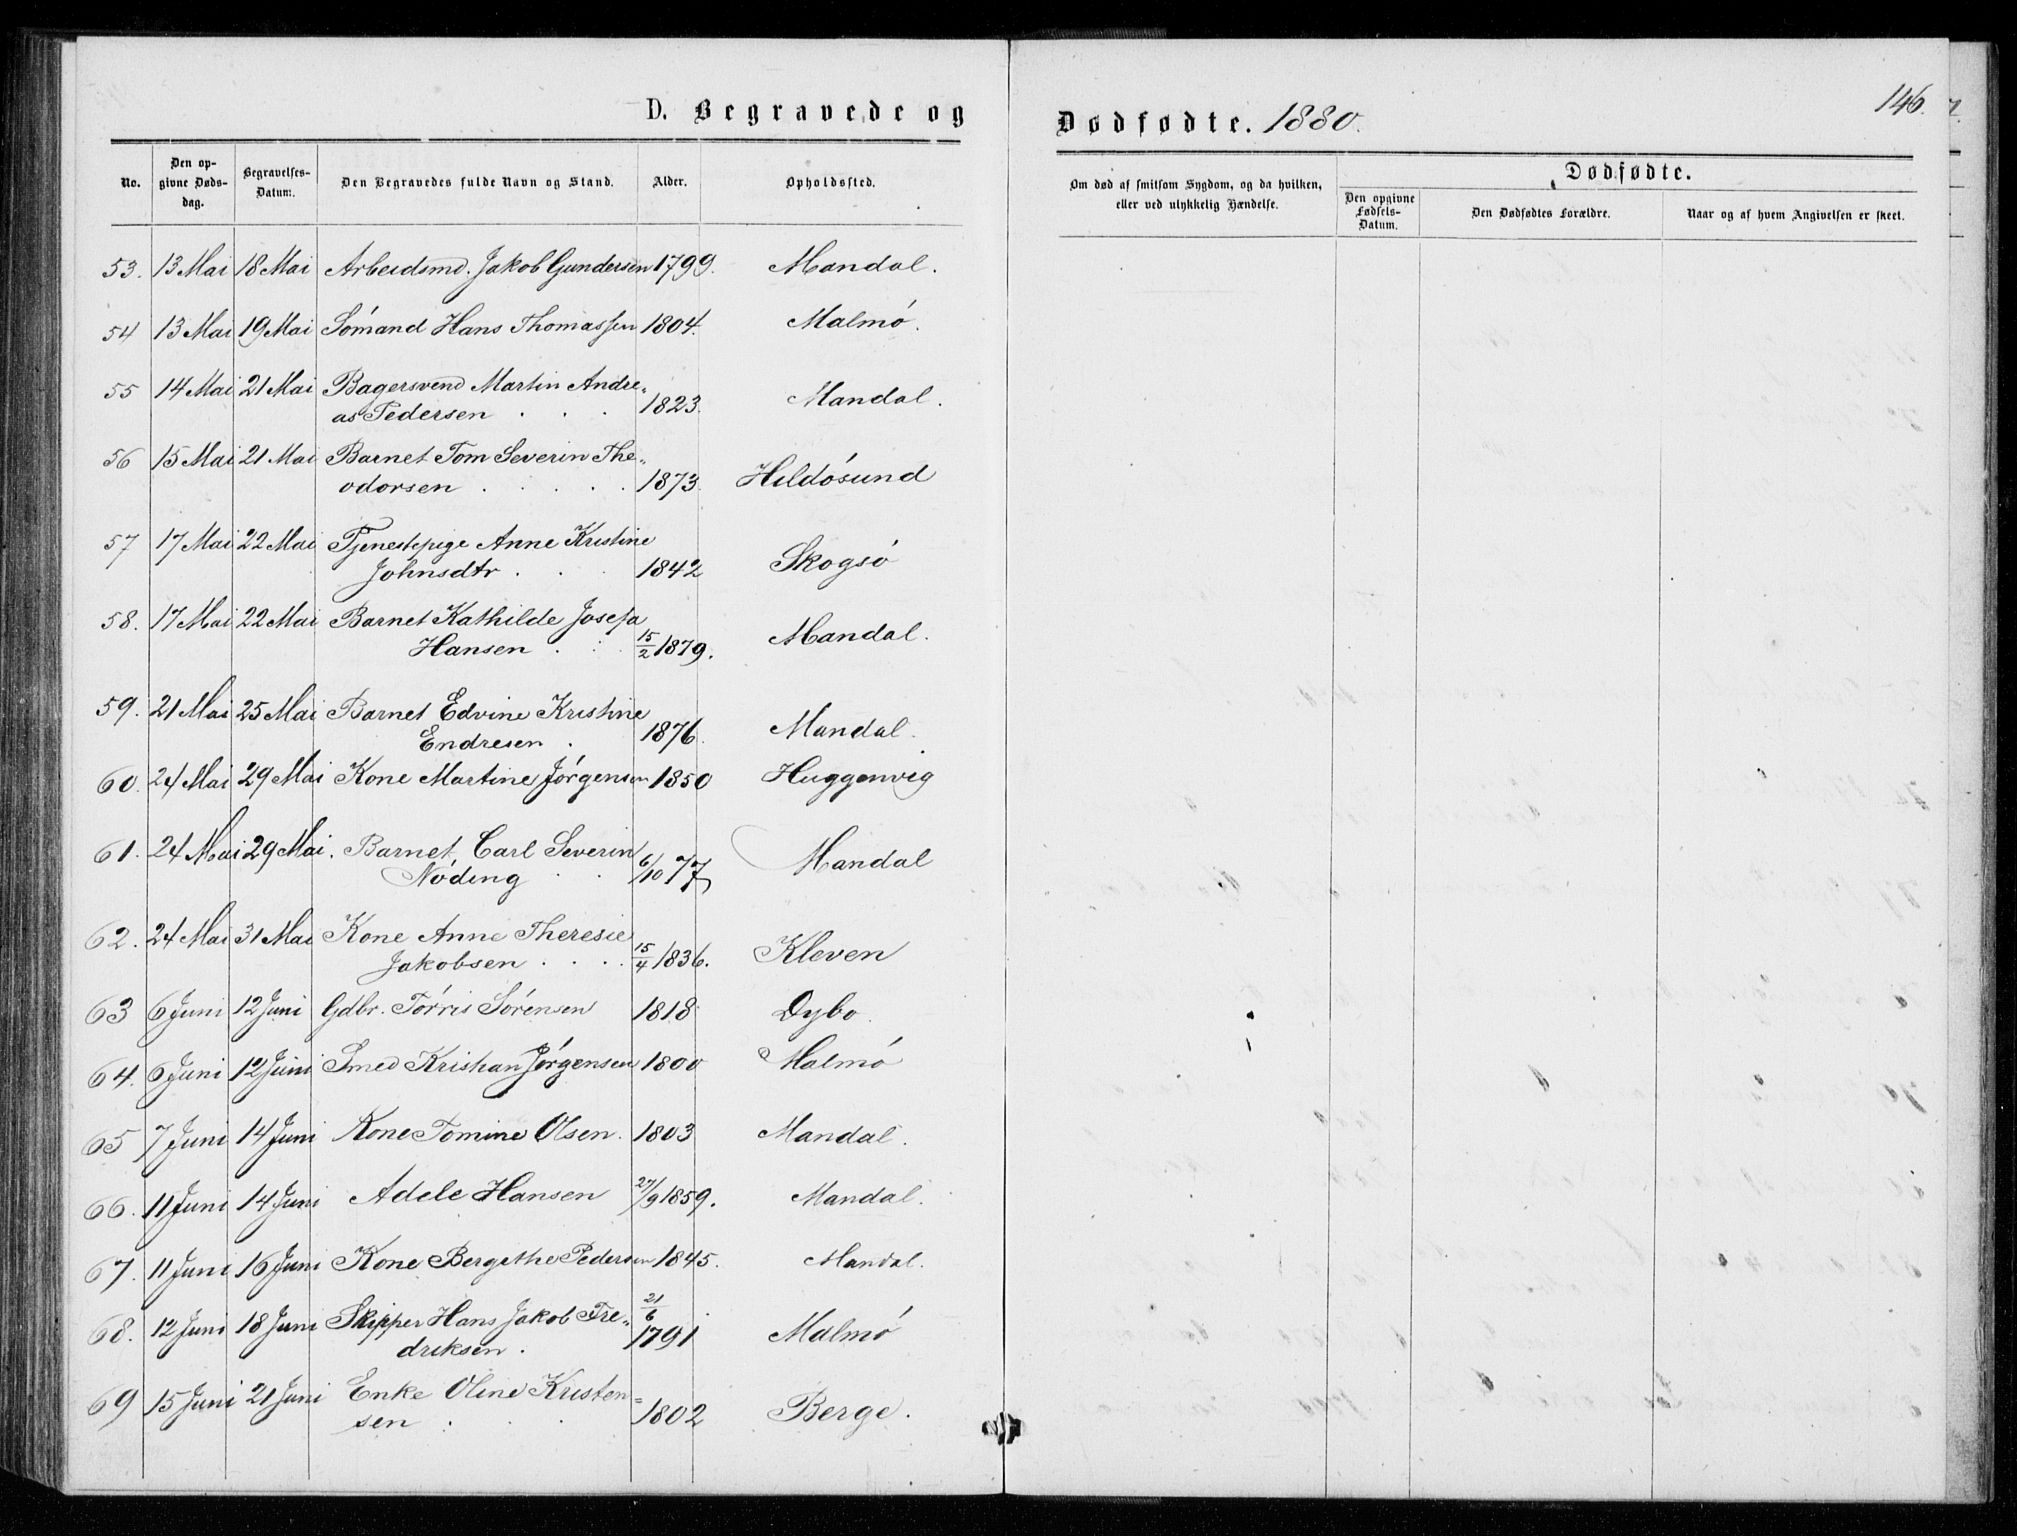 D. Begravede og
Dødfødte. 1880.
146.
No.
Den op-
givne Døds-
dag.
Begravelses-
Datum.
Den Begravedes fulde Navn og Stand.
Alder.
Opholdssted.
Om død af smitsom Sygdom, og da hvilken,
eller ved ulykkelig Hændelse.
Dødfødte.
Den opgivne
Fødsels-
Datum.
Den Dødfødtes Forældre.
Naar og af hvem Angivelsen er skeet.
53. 13 Mai 18 Mai Arbeidsmd. Jakob Gundersen 1799. Mandal.
54 13 Mai 19 Mai Sómand Hans Thomassen 1804. Malmó.
55 14 Mai 21 Mai Bagersvend Martin Andre„
as Pedersen . . . 1823. Mandal.
56 15 Mai 21 Mai Barnet Tom Severin The„
odorsen . . . . . 1873. Hildósund
57 17 Mai 22 Mai Tjenestepige Anne Kristine
Johnsdtr . . . 1842 Skogsó
58. 17 Mai 22 Mai Barnet Kathilde Josefa
Hansen . . . 15/2 1879. Mandal.
59. 21 Mai 25 Mai Barnet Edvine Kristine
Endresen . 1876. Mandal.
60. 24 Mai 29 Mai Kone Martine Jórgensen 1850 Huggenvig
61. 24 Mai 29 Mai. Barnet, Carl Severin
Nóding . . 6/10 77 Mandal
62. 24 Mai 31 Mai Kone Anne Theresie
Jakobsen . . . . 15/4 1836. Kleven
63 6 Juni 12 Juni Gdbr. Tórris Sórensen 1818 Dybo.
64. 6 Juni 12 Juni Smed Kristian Jórgensen 1800 Malmó
65 7 Juni 14 Juni Kone Tomine Olsen. 1803 Mandal.
66. 11 Juni 14 Juni Adele Hansen 27/9 1859. Mandal.
67. 11 Juni 16 Juni Kone Bergithe Pedersen 1845. Mandal.
68. 12 Juni 18 Juni Skipper Hans Jakob Fre„
driksen . 21/6 1791 Malmó
69 15 Juni 21 Juni Enke Oline Kristen=
sen . . . 1802 Berge.